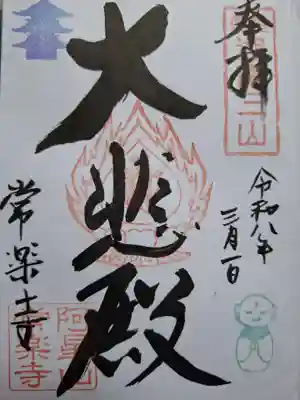 奉拝
令和八年
三月一日
大悲殿
常楽寺
阿星山
常楽寺